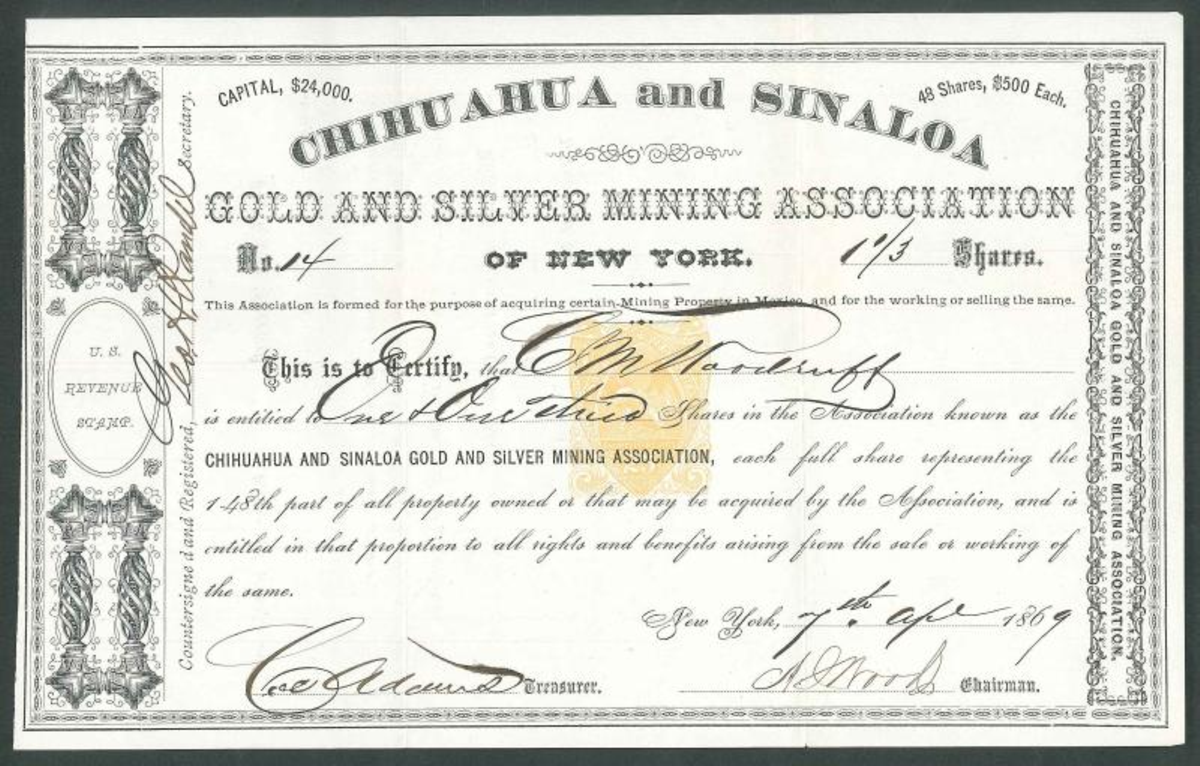 CAPITAL, $24,000.
48 Shares, $500 Each.
CHIHUAHUA and SINALOA
GOLD AND SILVER MINING ASSOCIATION
No. 14 OF NEW YORK. 1 1/3 Shares.
This Association is formed for the purpose of acquiring certain Mining Property in Mexico, and for the working or selling the same.
This is to Certify, that C M Woodruff
is entitled to One & One third Shares in the Association known as the
CHIHUAHUA AND SINALOA GOLD AND SILVER MINING ASSOCIATION, each full share representing the
1-48th part of all property owned or that may be acquired by the Association, and is
entitled in that proportion to all rights and benefits arising from the sale or working of
the same.
New York, 7th. Apl 1869
Adams Treasurer.
Woods Chairman.
Countersigned and Registered, Geo. H Randel Secretary.
U. S.
REVENUE
STAMP.
CHIHUAHUA AND SINALOA GOLD AND SILVER MINING ASSOCIATION.